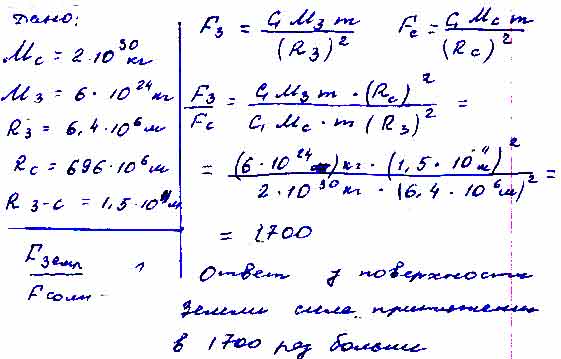 Дано:
Mс = 2·10³⁰ кг
Mз = 6·10²⁴ кг
Rз = 6,4·10⁶ м
Rс = 696·10⁶ м
R з-с = 1,5·10¹¹ м
Fземл / Fсолн - ?
Fз = G Mз m / (Rз)²
Fс = G Mс m / (Rс)²
Fз / Fс = G Mз m · (Rс)² / G Mс · m (Rз)² =
= (6·10²⁴) кг · (1,5·10¹¹ м)² / 2·10³⁰ кг · (6,4·10⁶ м)² =
= 1700
Ответ у поверхности
Земли сила притяжения
в 1700 раз больше